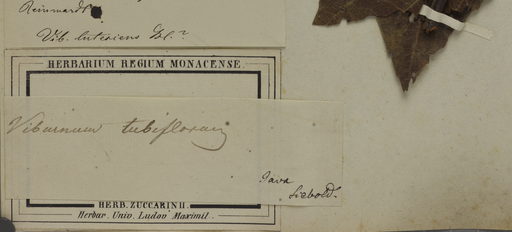 Reinwardt
Vib. lutescens Bl.?
HERBARIUM REGIUM MONACENSE.
Viburnum tubiflorum
Java
Siebold.
HERB. ZUCCARINII.
Herbar. Univ. Ludov. Maximil.